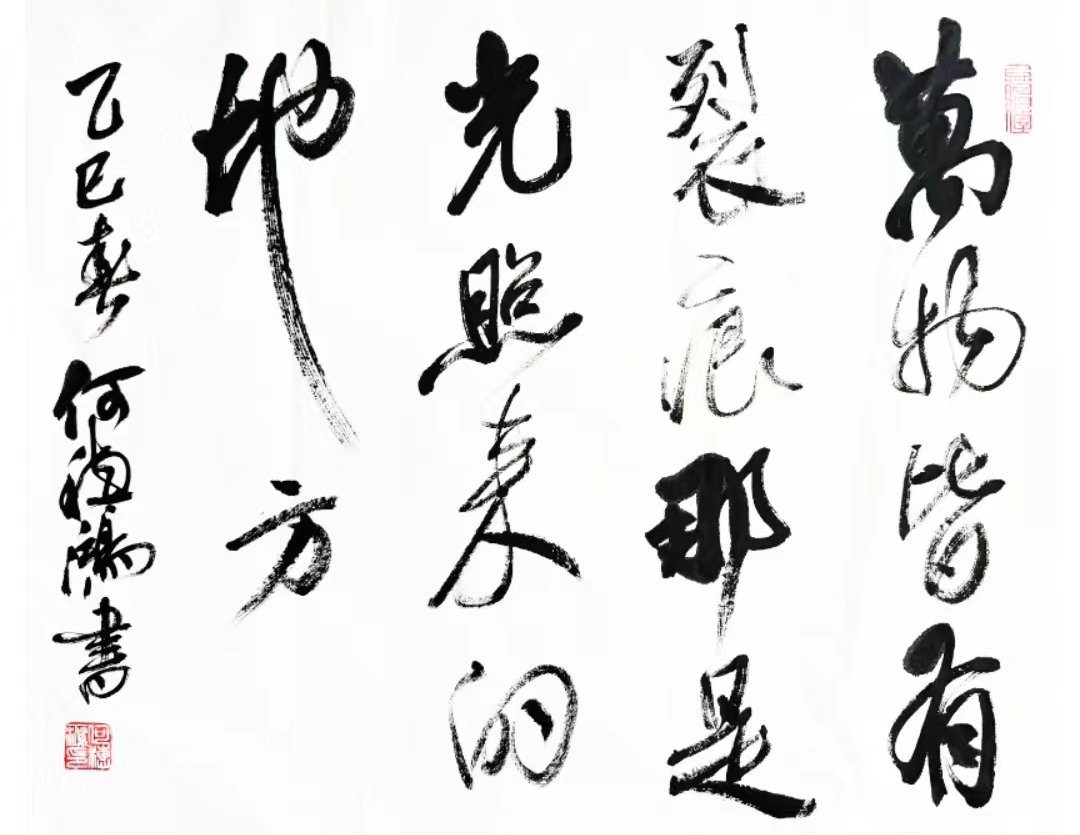 萬物皆有
裂痕那是
光照来的
地方
乙巳春
何德鴻書